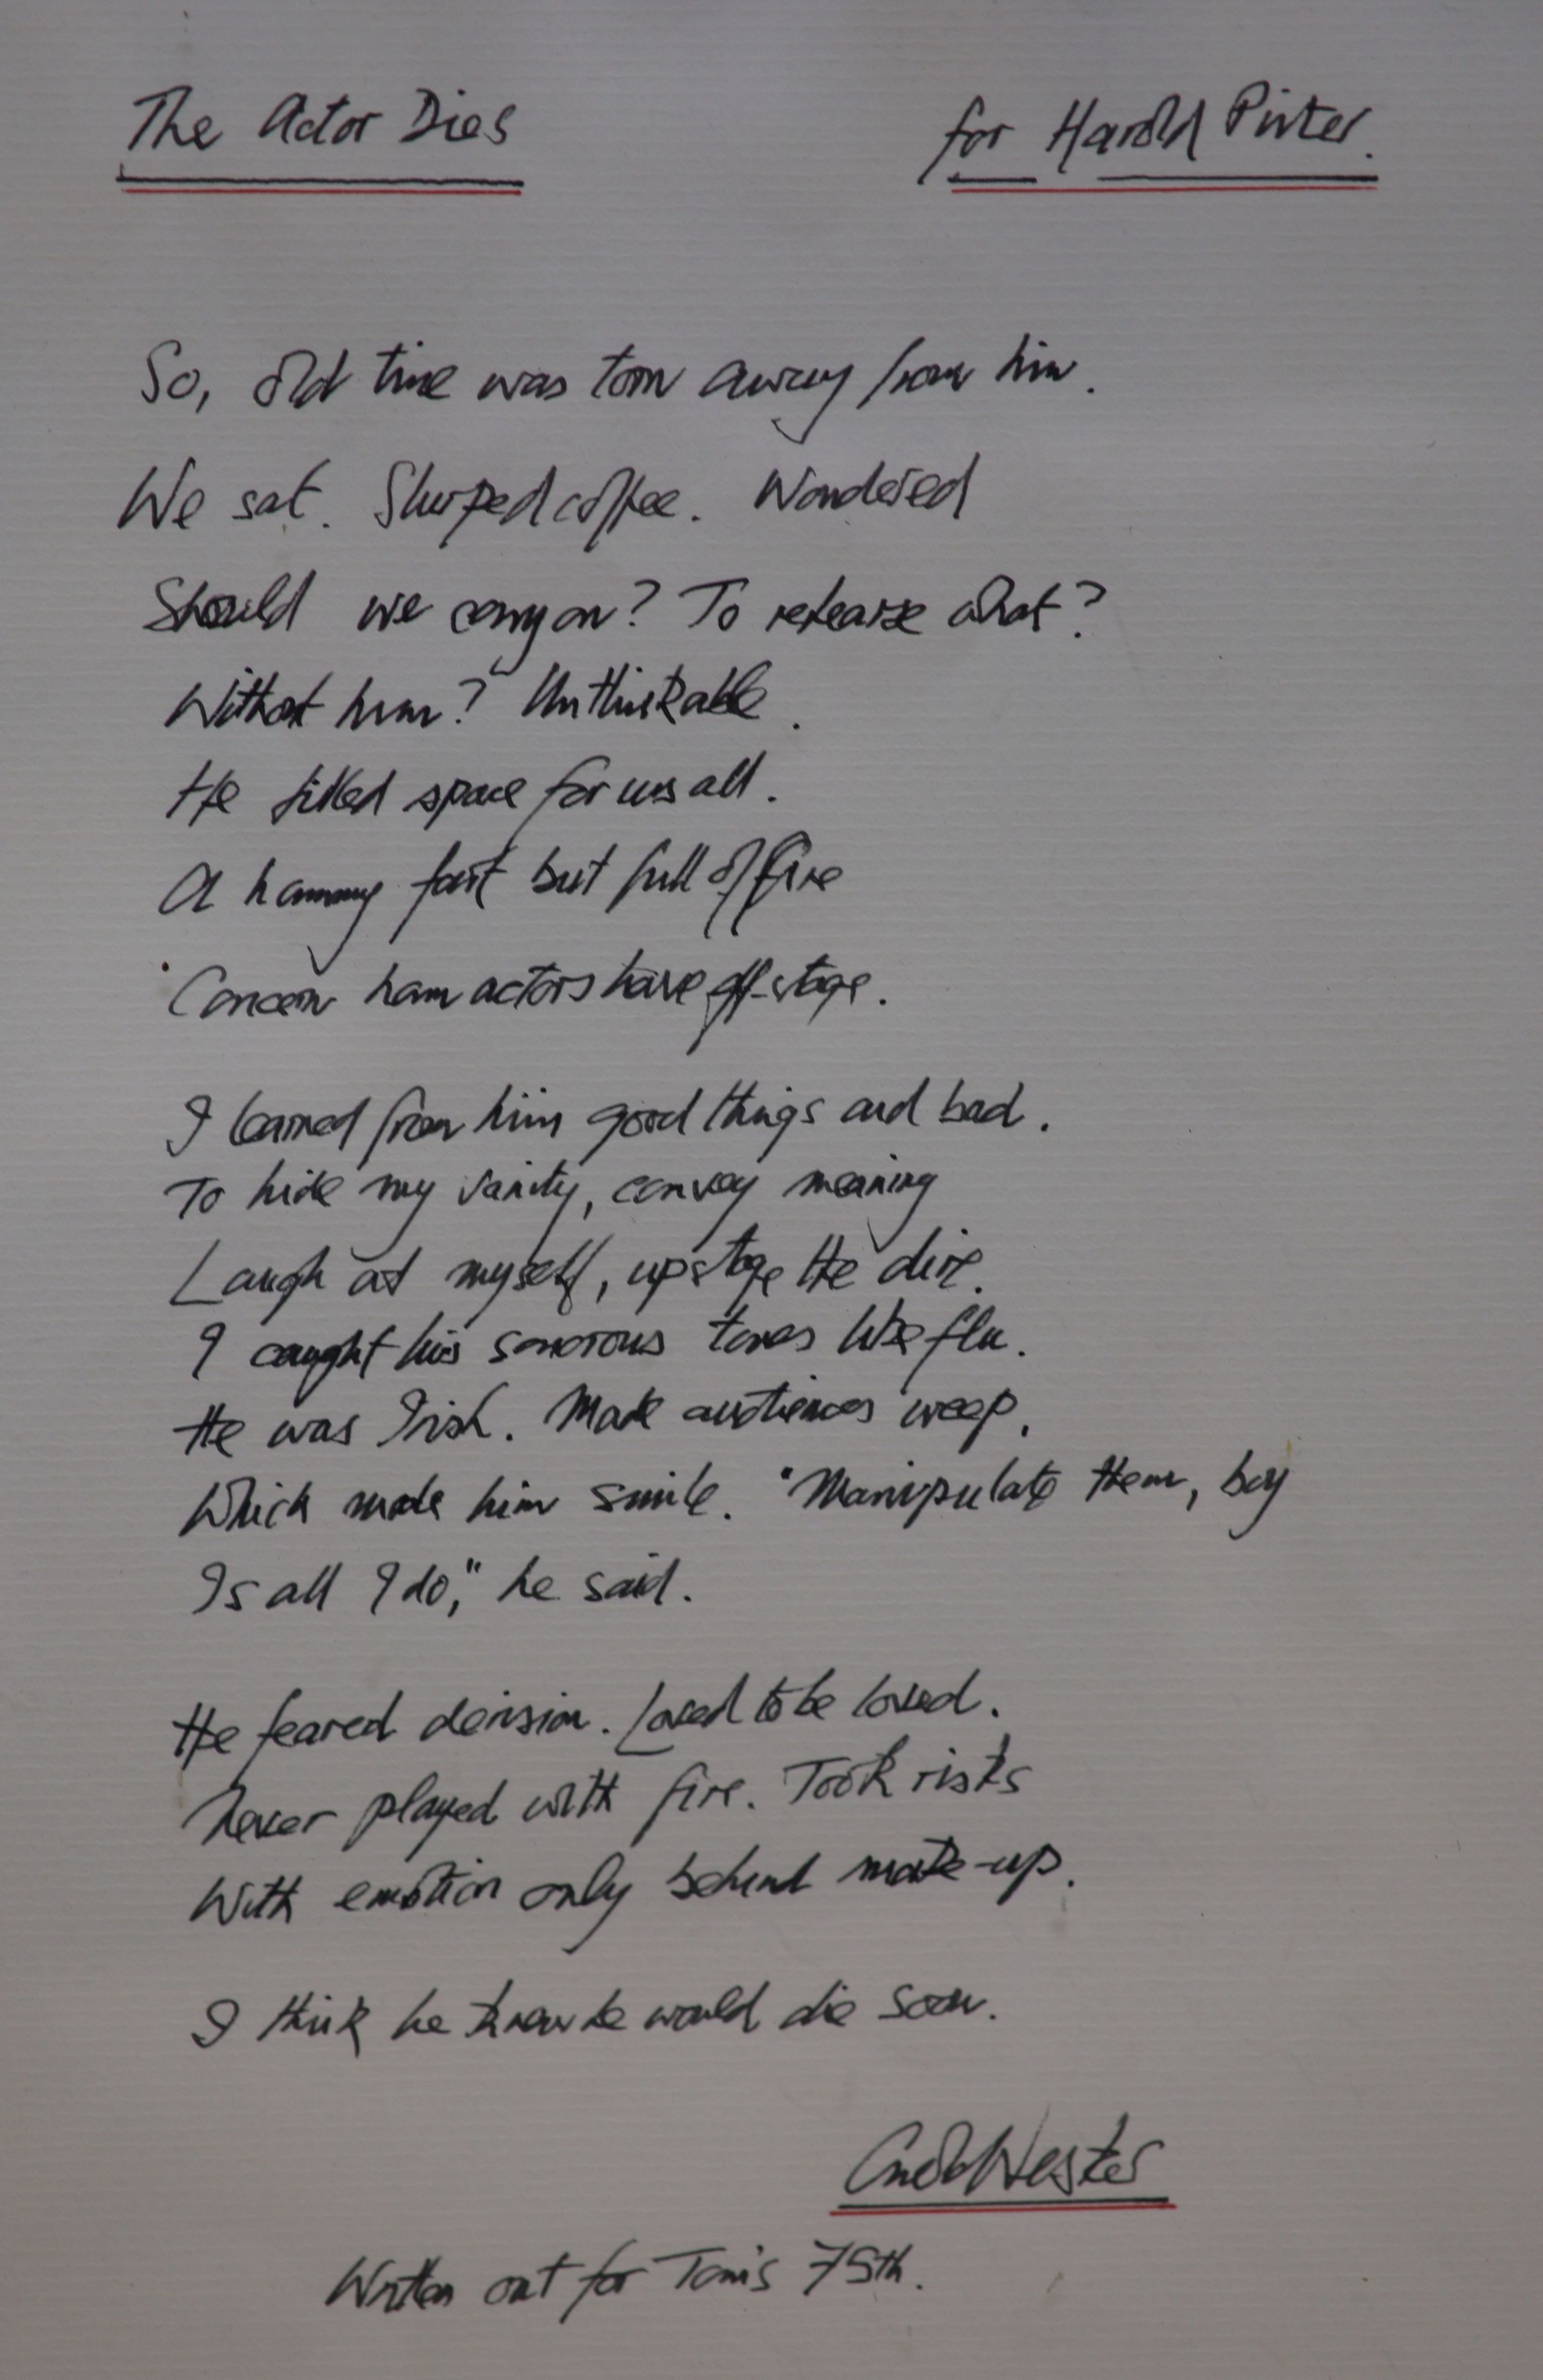 The Actor Dies for Harold Pinter.
So, old time was torn away from him.
We sat. Slurped coffee. Wondered
Should we carry on? To rehearse what?
Without him? Unthinkable.
He filled space for us all.
A hammy fart but full of fire
Concern ham actors have off-stage.
I learned from him good things and bad.
To hide my vanity, convey meaning
Laugh at myself, upstage the dire.
I caught his sonorous tones like flu.
He was Irish. Made audiences weep.
Which made him smile. "Manipulate them, boy
Is all I do," he said.
He feared derision. Loved to be loved.
Never played with fire. Took risks
With emotion only behind make-up.
I think he knew he would die soon.
Arnold Wesker
Written out for Tom's 75th.